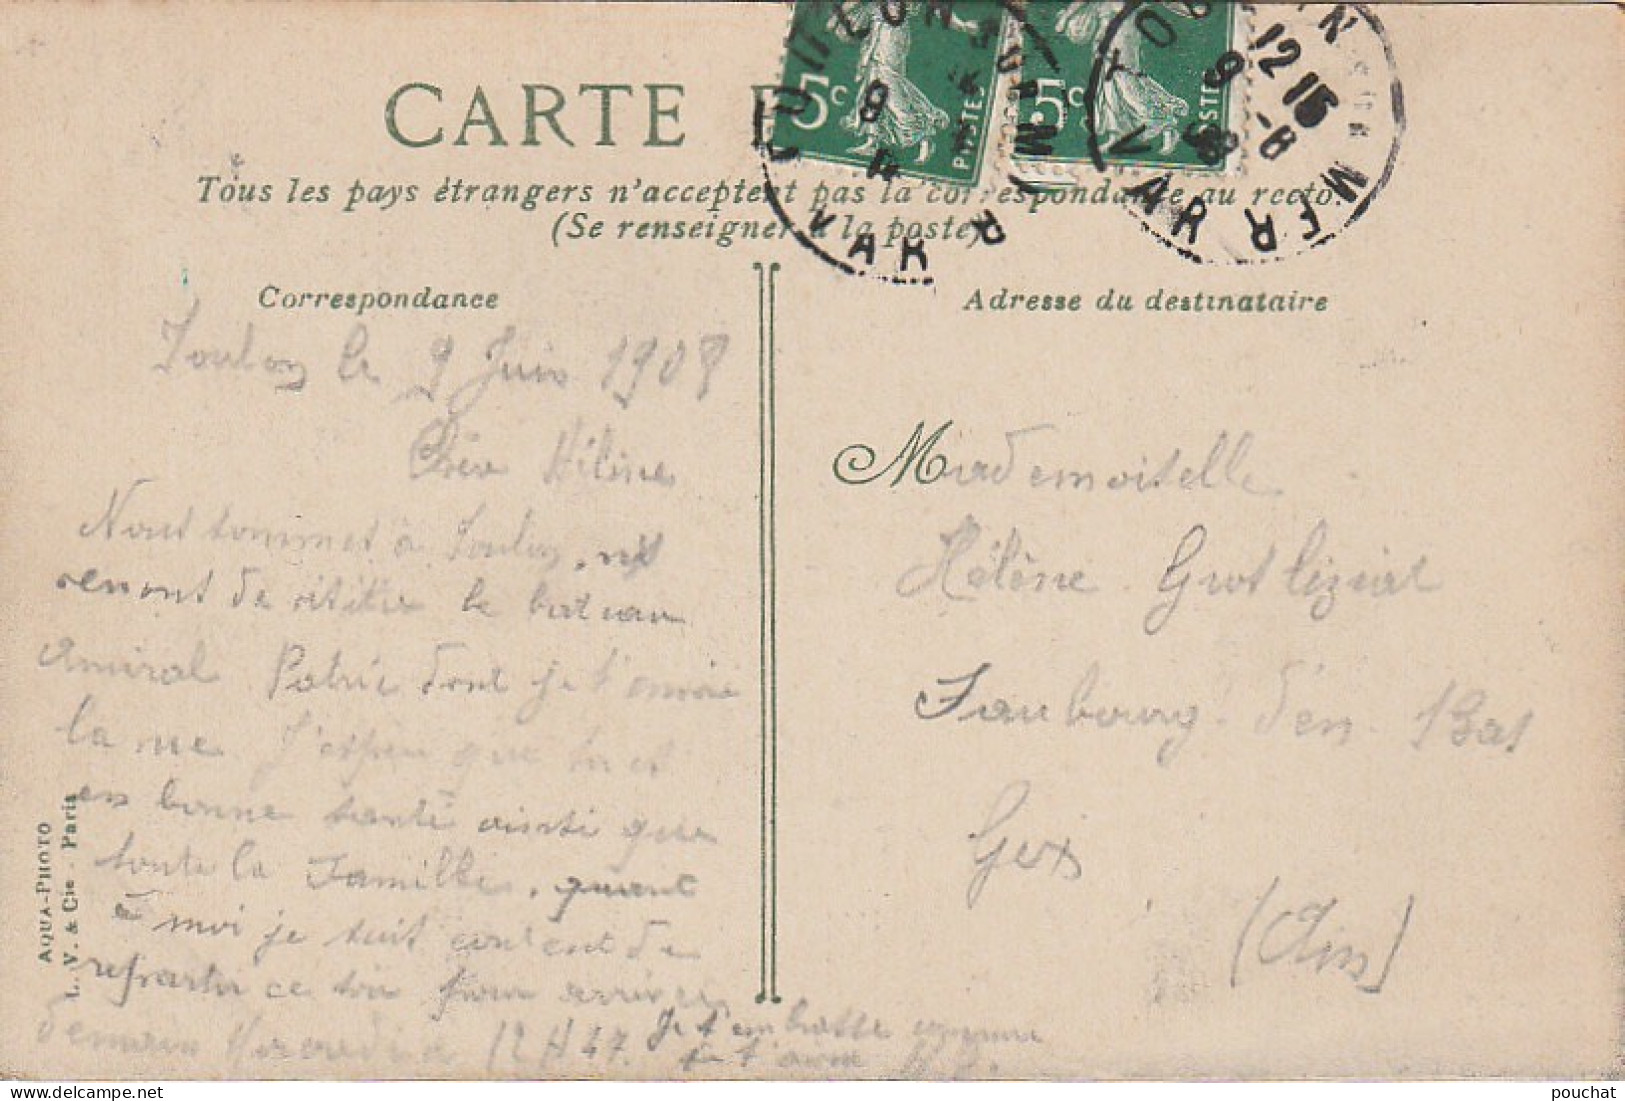 CARTE P
Tous les pays étrangers n'acceptent pas la correspondance au recto.
(Se renseigner à la poste)
Correspondance
Toulon le 9 Juin 1908
Chère Hélène
Nous sommes à Toulon, ns
venons de visiter le bateau
Amiral Patrie dont je t'envoie
la vue J'espère que tu es
en bonne santé ainsi que
toute la Famille, quant
à moi je suis content de
repartir ce soir pour arriver
demain Mercredi à 12 H 47. Je t'embrasse comme
je t'aime
Adresse du destinataire
Mademoiselle
Hélène Grosléziat
Faubourg d'en Bas
Gex
(Ain)
5c POSTES
5c POSTES
TOULON SUR MER
VAR
TOULON SUR MER
VAR
12 15
9 -6
08
AQUA-PHOTO
L. V. & Cie - Paris
pouchat